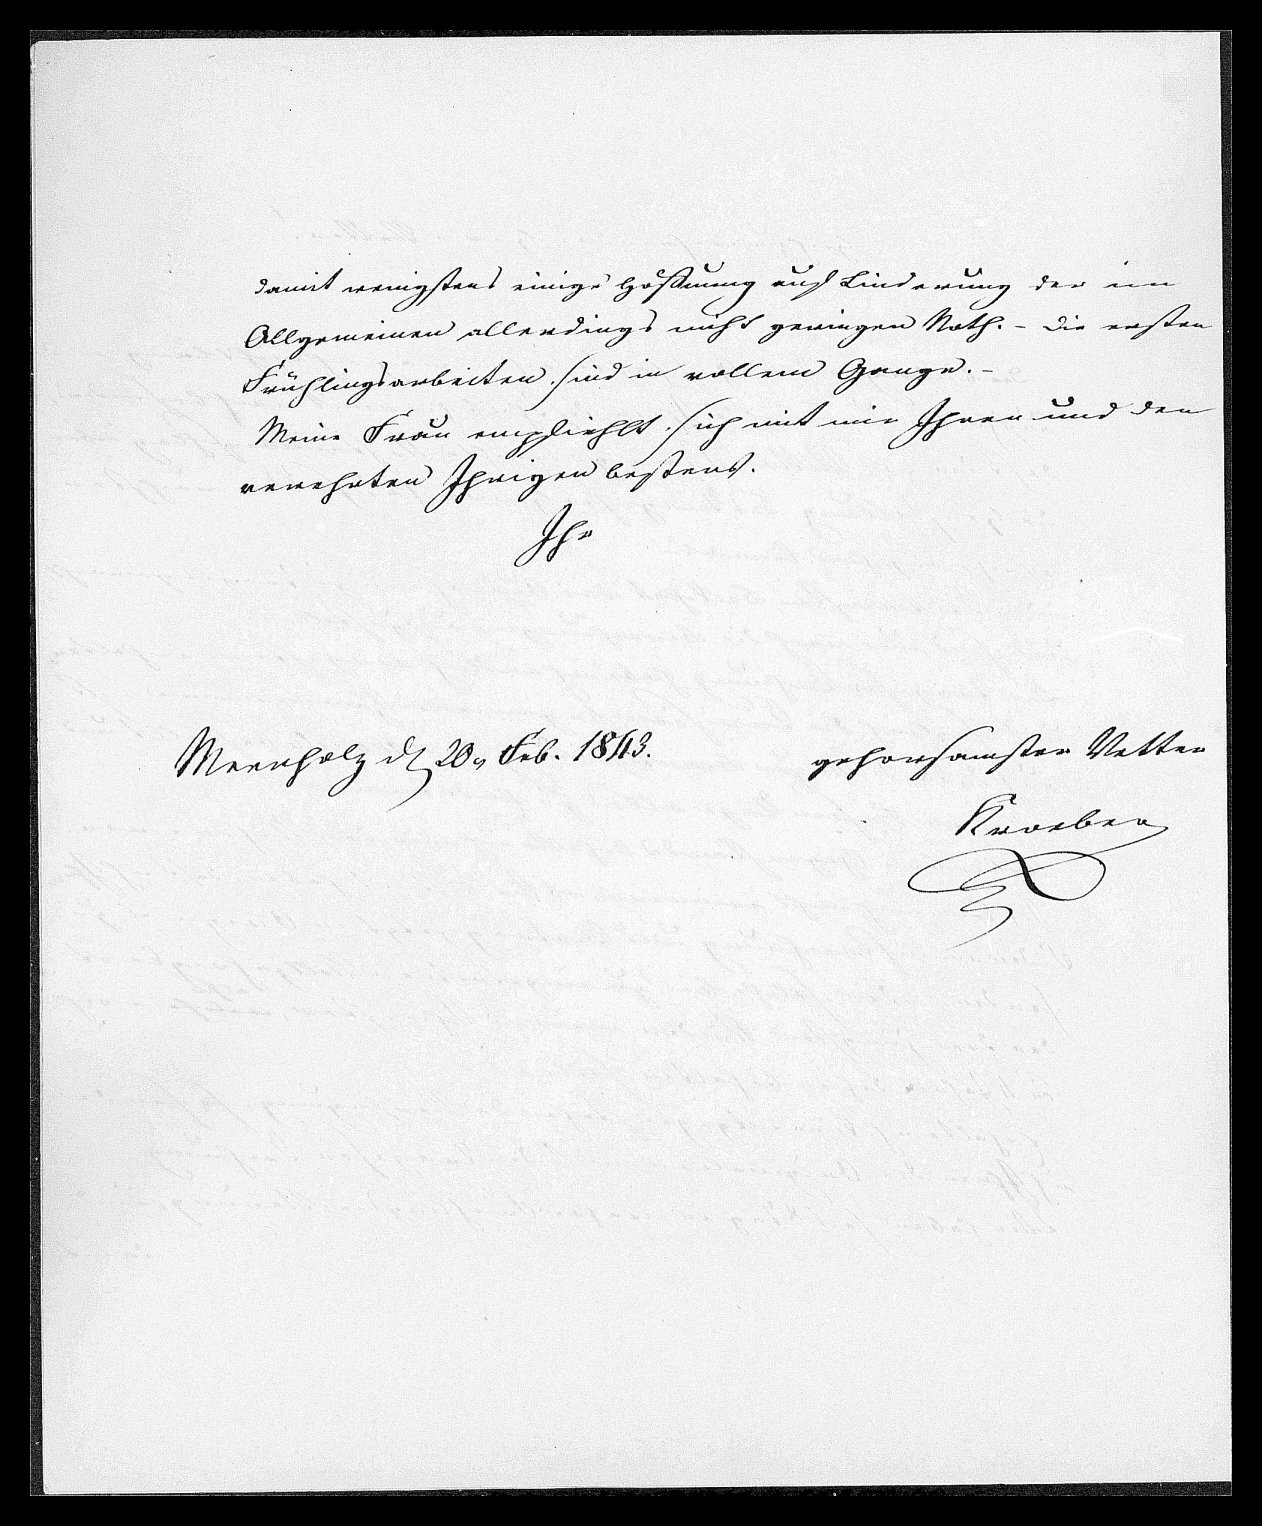 damit wenigstens einige Hoffnung auf Linderung der im
Allgemeinen allerdings nicht geringen Noth. – Die ersten
Frühlingsarbeiten sind in vollem Gange. –
Meine Frau empfiehlt sich mit mir Ihnen und den
verehrten Ihrigen bestens.
Ihr
Meerholz d 20n Feb. 1843.
gehorsamster Vetter
Kroeber